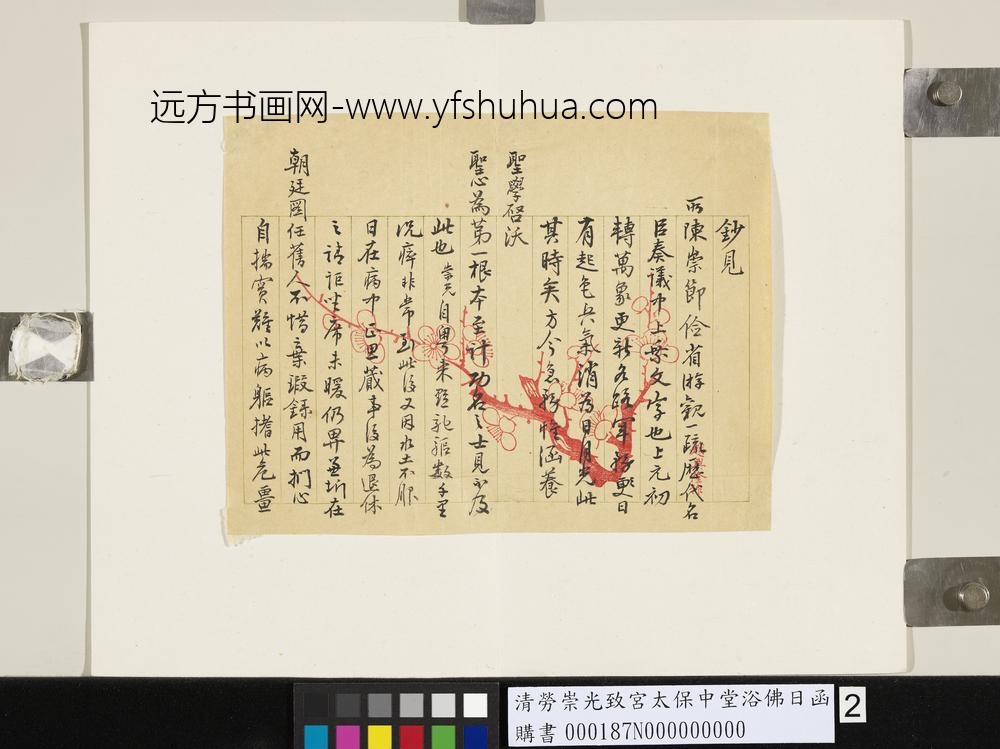 远方书画网-www.yfshuhua.com
鈔見
所陳崇節儉省游觀一疏歷代名
臣奏議中上乘文字也上元初
轉萬象更新各路軍務更日
有起色兵氣消為日月光此
其時矣方今急務惟涵養
聖學啓沃
聖心為第一根本至計功名之士見不及
此也崇光自粵來黔馳驅數千里
況瘁非常到此後又因水土不服
日在病中正思蕆事後為退休
之請詎坐席未暖仍畀兼圻在
朝廷圖任舊人不惜棄瑕錄用而捫心
自揣實難以病軀搘此危疆
清勞崇光致宮太保中堂浴佛日函
購書 000187N000000000
2